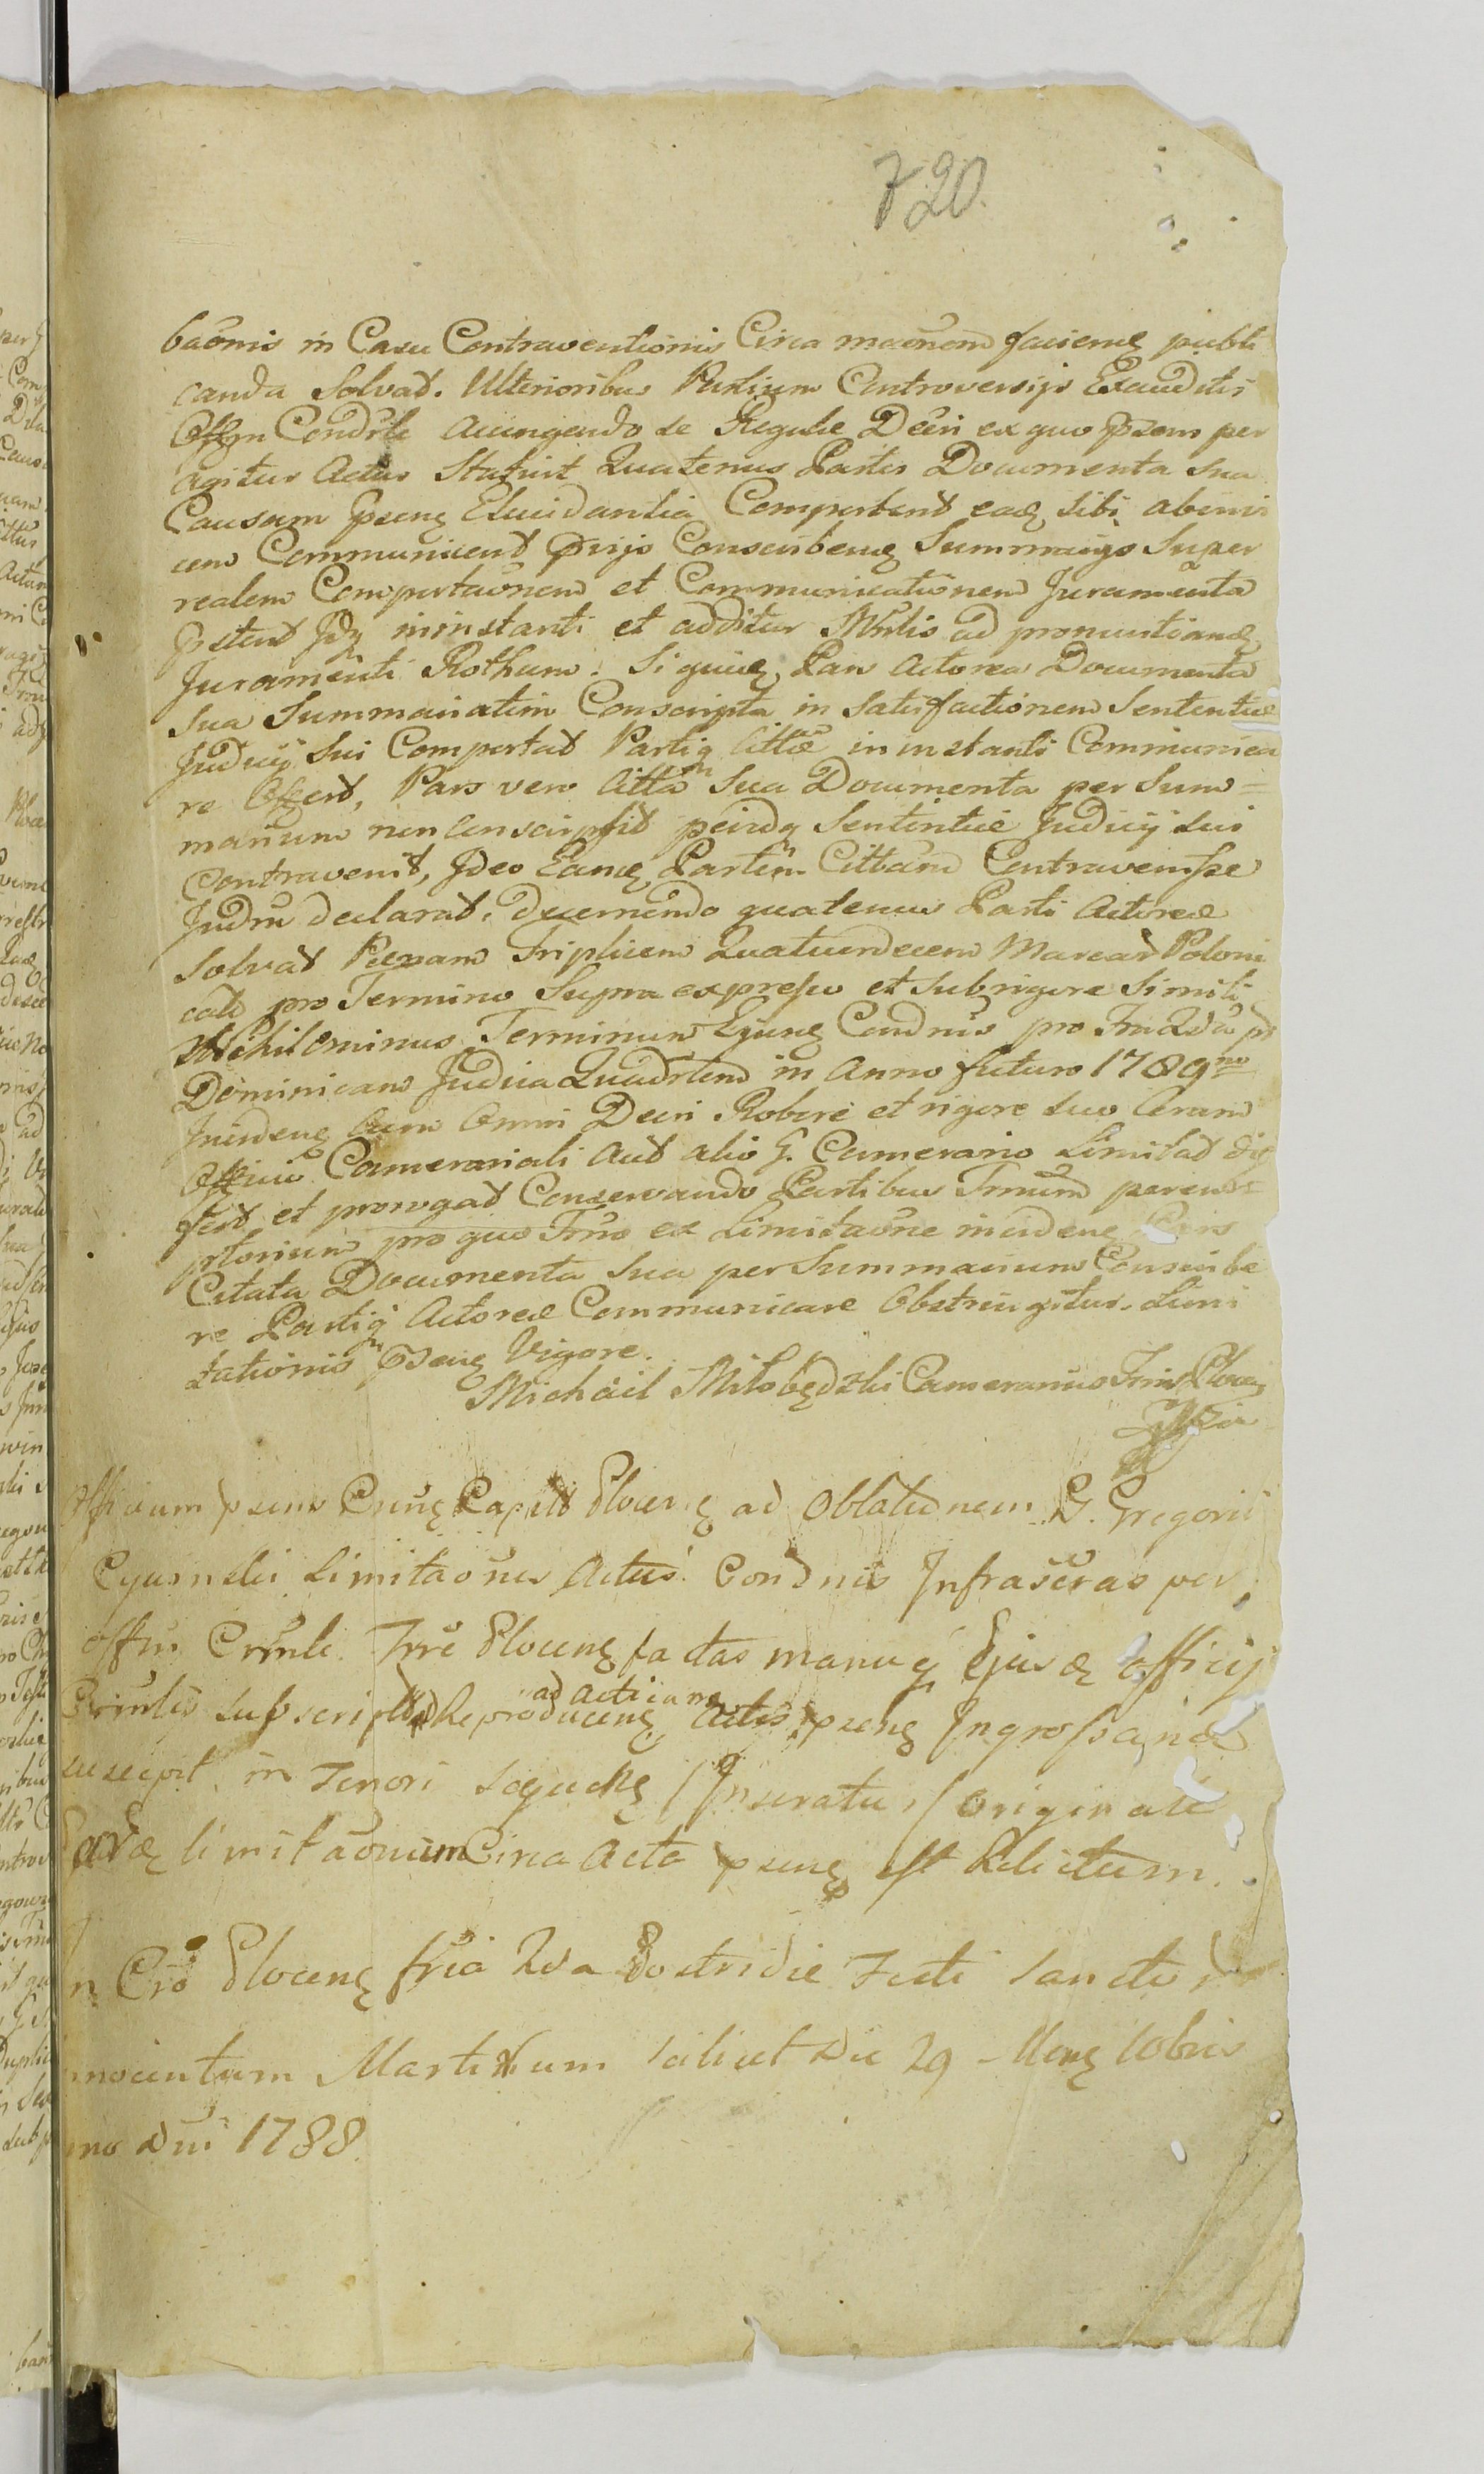 720.
baõnis in Casu Contraventionis Circa mõnem facienę publi
canda Solvat. Ulterioribus Partium Controversijs Exauditis
Offm Condrle accingendo se Regulæ Decri ex quo p̃sens per
agitur Actus Statuit Quatenus Partes Documenta sua
Causam p̃senę Elucidantia Comportent eaq sibi abinvi
cem Communicent prijs Conscribenę Summarijs Super
realem Comportaõnem et Communicationem Juramenta
p̃stent Idq in instanti et additur Mnlis ad pronuntianđ
Juramenti Rotham. Si quidę Pars Actorea Documenta
sua Summariatim Conscripta in Satisfactionem Sententiæ
Judicij sui Comportat Partiq Cittæ in instanti Communica
re Offert, Pars vero Citta Sua Documenta per Sum=
marium non Conscripsit perindq Sententiæ Judicij Sui
Contravenit, Ideo Eandę Partem Cittam Contravenisse
Judm declarat. decernendo quatenus Parti Actoreæ
Solvat Pænam Triplicem Quatuordecem Marcar Poloni
cali pro Termino Supra expresso et sub rigore simili
Nihilominus Terminum Ejusdę Condnis pro Fria 2da pt
Dominicam Judica Quadrlem in Anno futuro 1789no
Incidenę Cum Omni Decri Robore et rigore suo Coram
Officio Camerariali Aut alio G. Camerario Limitat dif
fert et prorogat Conservando Partibus Trmum perem=
ptorium pro quo Trno ex Limitaõne incidenę Pars
Citata Documenta Sua per Summarium Conscribe
re Partiq Actoreæ Communicare Obstringitur. Limi
tationis p̃senę Vigore.
Michael Miłobędzki Camerarius Trris Plocen
Officium p̃sens Crense Capitle Plocenę ad Oblationem G. Gregorii
limitaõnes Actus Condnis Infrascras per
offm Crmle Trre Plocenę factas manuq Ejusdę officij
Crmlis subscript Reproducenę ad acticanđ Actis p̃senę Ingrossanđ
suscepit in Tenori seqvenę /Inseratur/ originale
Earđę limitaõnium Circa Acta p̃senę est Relictum.
n Cro Plocenę fria 2da Postridie Festi Sanctor
nnocentum Martirum scilicet Die 29 Menę Xbris
nno Dni 1788.